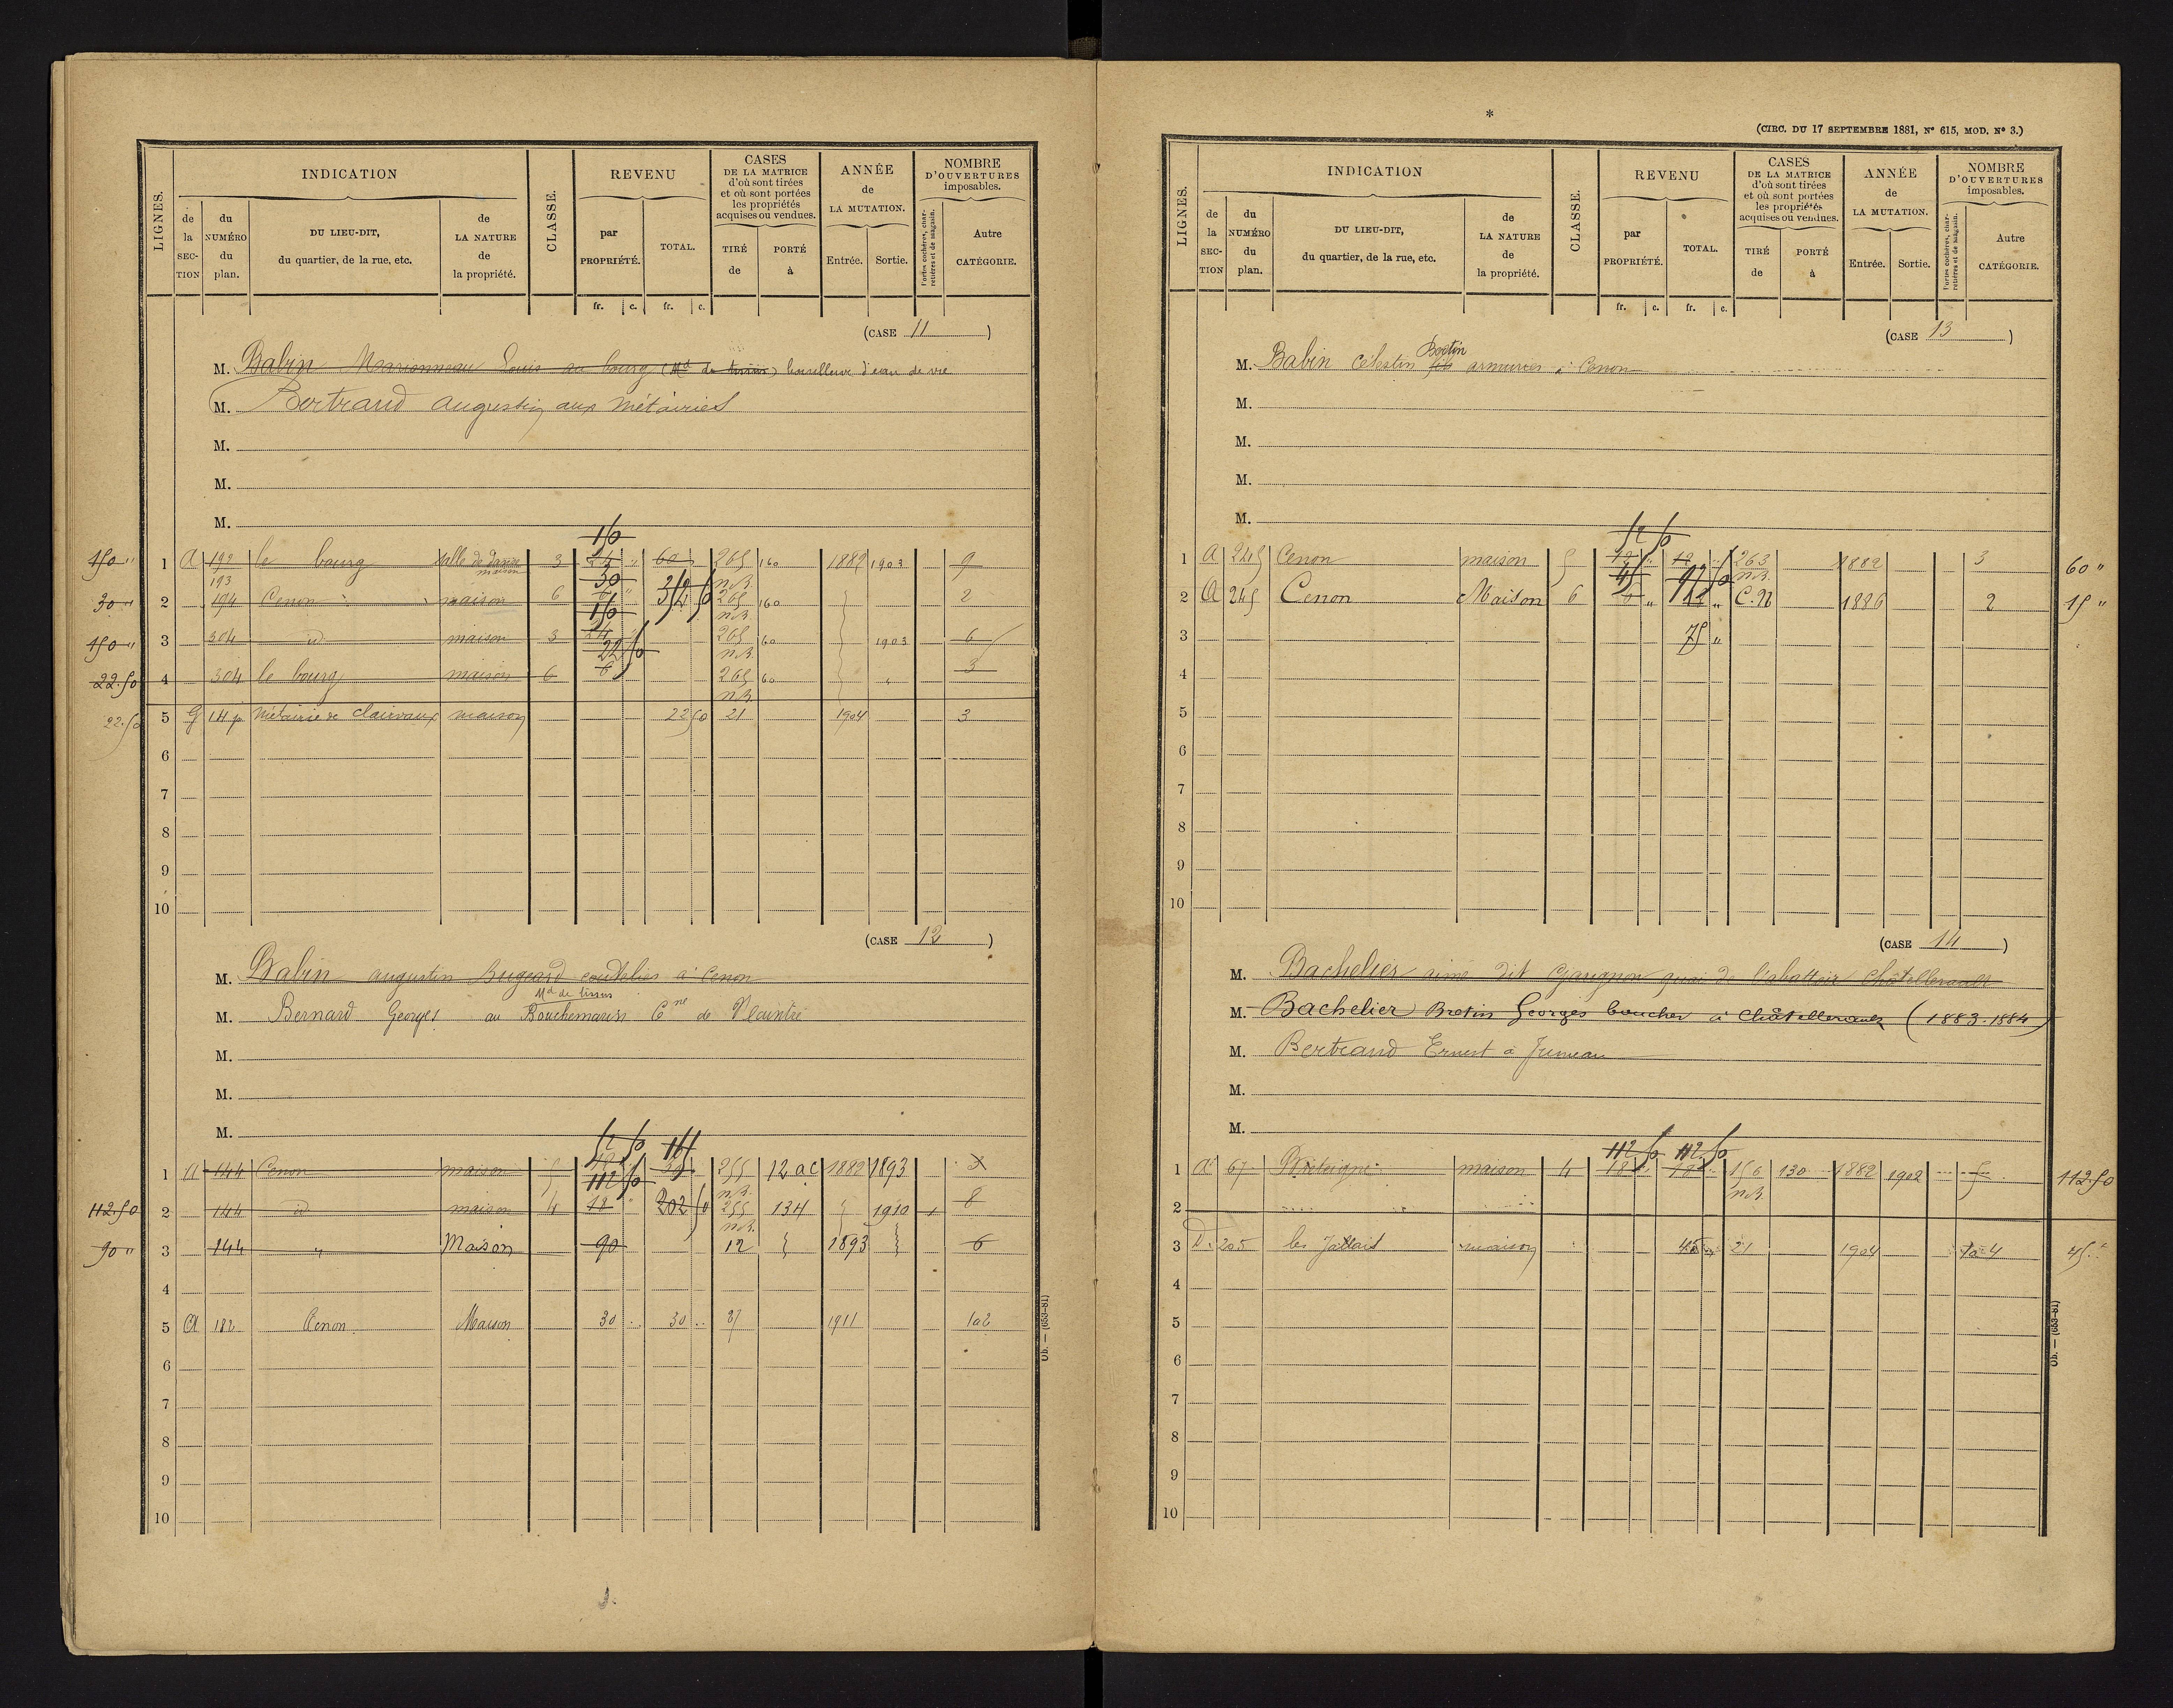 LIGNES.
INDICATION
de la SECTION
du NUMÉRO du plan.
DU LIEU-DIT, du quartier, de la rue, etc.
de LA NATURE de la propriété.
CLASSE.
REVENU
par PROPRIÉTÉ.
TOTAL.
CASES DE LA MATRICE d'où sont tirées et où sont portées les propriétés acquises ou vendues.
TIRÉ de
PORTÉ à
ANNÉE de LA MUTATION.
Entrée.
Sortie.
NOMBRE D'OUVERTURES imposables.
Portes cochères, charretières et de magasin.
Autre CATÉGORIE.
fr. c. fr. c.
(CASE 11)
M. Babin Marionneau Louis au bourg (Md de tissus) bouilleur d'eau de vie
M. Bertrand Augustin aux Métairies
M.
M.
M.
150
150 " 1 A 192 le bourg salle de danse maison 3 24 " 60 " 265 160 1882 1903 9
193 30 n.B.
30 " 2 194 Cenon maison 6 6 " 352 50 265 160 2
150 n.B.
150 " 3 304 id maison 3 24 265 60 1903 6
22 50 n.B.
22.50 4 304 le bourg maison 6 6 265 60 " 3
n.B.
22.50 5 G 14 p Métairie de Clairvaux maison 22 50 21 1904 3
6
7
8
9
10
(CASE 12)
M. Babin augustin Bugeard coutelier à Cenon
Md de tissus
M. Bernard Georges au Bouchemarin Cne de Naintré
M.
M.
M.
52 50
1 A 144 Cenon maison 5 255 12 ac 1882 1893 3
112 50 n.B.
112.50 2 144 id maison 4 18 " 202 50 255 134 1910 1 8
n.B.
90 " 3 144 " Maison 90 12 1893 6
4
5 A 182 Cenon Maison 30 .. 30 .. 87 1911 1a2
6
7
8
9
10
Ob. — (653-81)
*
(CIRC. DU 17 SEPTEMBRE 1881, N° 615, MOD. N° 3.)
LIGNES.
INDICATION
de la SECTION
du NUMÉRO du plan.
DU LIEU-DIT, du quartier, de la rue, etc.
de LA NATURE de la propriété.
CLASSE.
REVENU
par PROPRIÉTÉ.
TOTAL.
CASES DE LA MATRICE d'où sont tirées et où sont portées les propriétés acquises ou vendues.
TIRÉ de
PORTÉ à
ANNÉE de LA MUTATION.
Entrée.
Sortie.
NOMBRE D'OUVERTURES imposables.
Portes cochères, charretières et de magasin.
Autre CATÉGORIE.
fr. c. fr. c.
(CASE 13)
M. Babin Célestin fils Bertin armurier à Cenon
M.
M.
M.
M.
52 50
1 A 245 Cenon maison 5 12 " 12 " 263 1882 3 60 "
45 97 50 n.B.
2 A 245 Cenon Maison 6 6 " " C.N 1886 2 15 "
3 75 "
4
5
6
7
8
9
10
(CASE 14)
M. Bachelier aimé dit Gavignon quai de l'abattoir Châtellerault
M. Bachelier Bretin Georges boucher à Châtellerault (1883-1884)
M. Bertrand Ernest à Jumeau
M.
M.
112 50 112 50
1 A 67 maison 4 18 " 18 " 156 130 1882 1902 5 112.50
n.B.
2
3 D 205 les Jallais maison 45 " 21 1904 1a4 45 "
4
5
6
7
8
9
10
Ob. — (653-81)